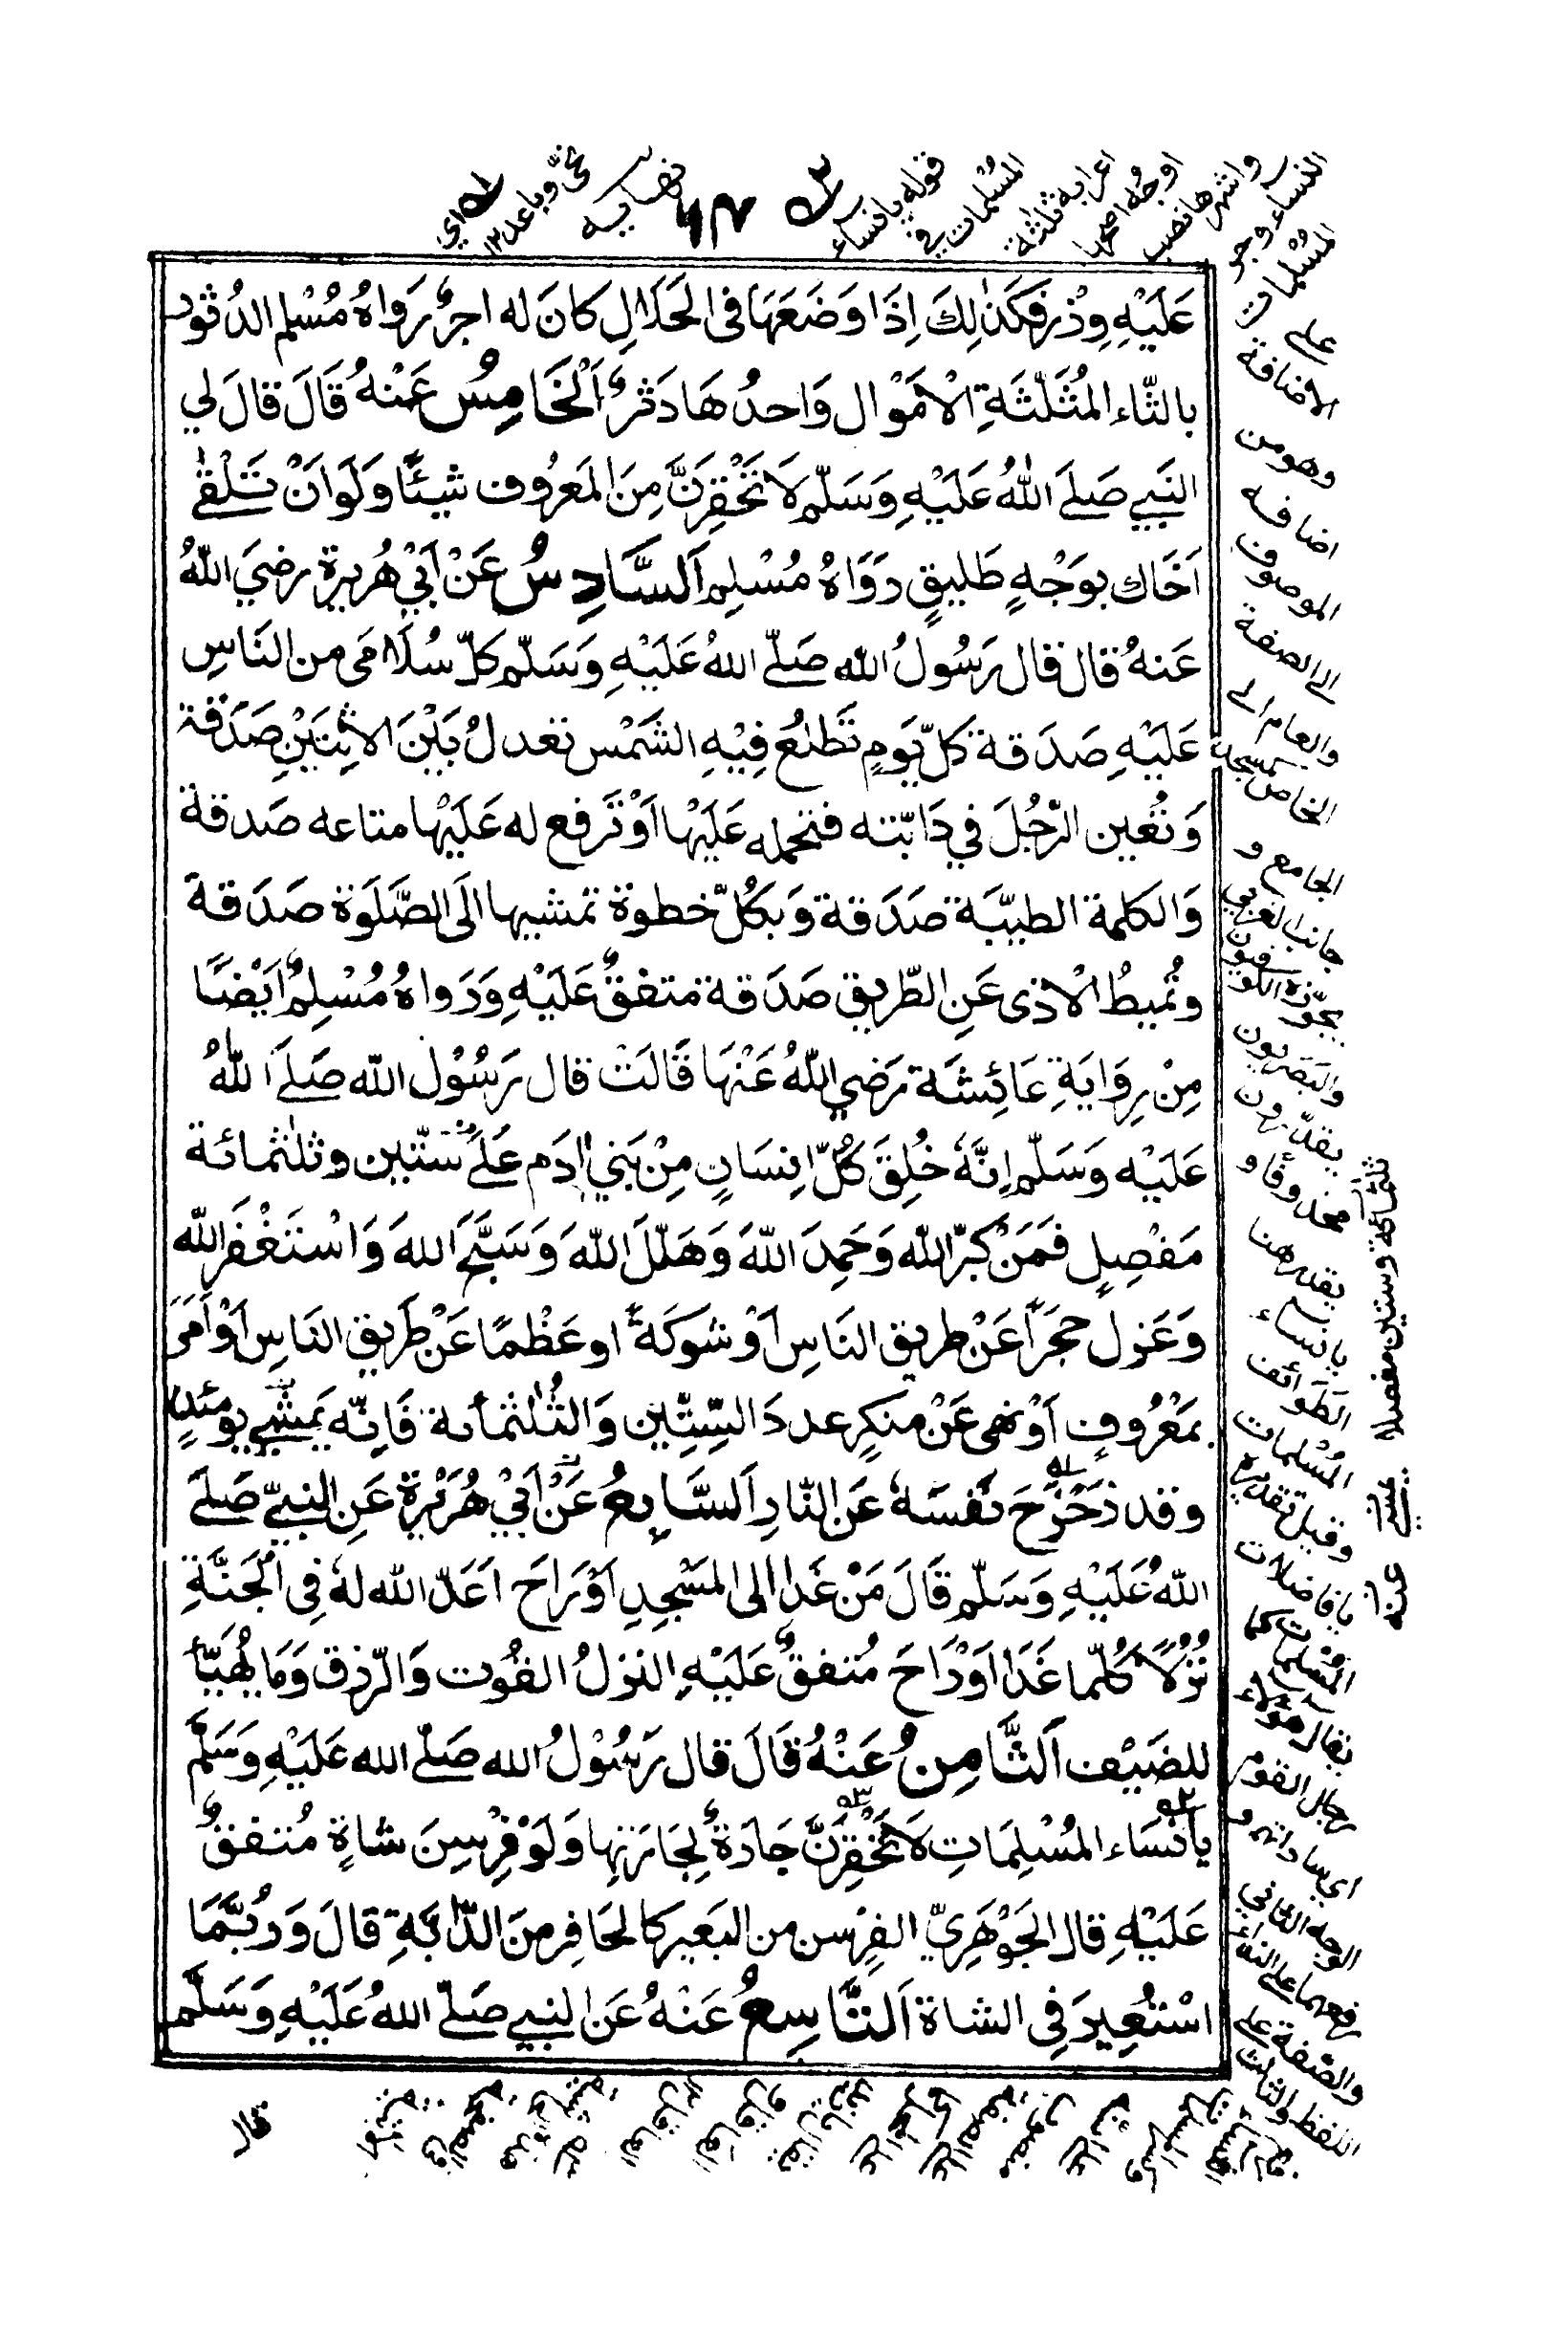 عَلَيْهِ وِزْر فَكَذٰلِكَ اِذَا وَضَعَهَا فى الحَلَالِ كَانَ له اجرٌ رَوَاهُ مُسْلِم الدُثور
بالثّاء المُثَلّثَةِ الْاَمْوَال وَاحدُهَا دَثْرٌ اَلْخَامِسُ عَنْهُ قَالَ قالَ لي
النَبيِ صَلىَ اللهُ عَلَيْهِ وَسَلّم لَا تَحْقِرَنَّ مِنَ المَعرُوف شيئًا وَلَوَ انْ تَلْقٰى
اَخَاك بوَجْهٍ طَلیقٍ رَوَاهُ مُسْلِم اَلسَّادِسُ عَنْ اَبيْ هُريرة رضيَ اللّٰهُ
عَنهُ قال قال رَسُولُ الله صَلّى اللهُ عَلَيْهِ وَسَلّم كلّ سُلَامَى من النَاسِ
عَلَيْهِ صَدَقة كلّ يَومٍ تَطْلعُ فِيْهِ الشَمْس تعدلُ بَيْنَ الاثنَيْنِ صَدَقة
وَتُعين الرّجُلَ في دَابّته فتحمله عَلَيْها اَوْ تَرفع له عَلَيْها متاعه صَدقة
وَالكلمة الطيبّة صَدَقة وَبكُلّ خطوة تمشيها الَى الصَّلَوة صَدَقة
وتُميطُ الْاَذى عَنِ الطّريق صَدَقة متفقٌ عَلَيْهِ وَرَواهُ مُسْلِمٌ اَيْضًا
مِنْ رِوَايَةِ عَائِشَة رَضي اللّٰهُ عَنْهَا قَالَتْ قال رَسُوْل الله صَلىَ اللهُ
عَلَيْه وَسَلّم اِنَّهٗ خُلِقَ كُلّ اِنسَانٍ مِنْ بَني اٰدَم عَلَى ستّين وثلٰثمائة
مَفْصِلٍ فَمَنْ كَبّر الله وَحَمِدَ اللّٰهَ وَهَلّلَ اللّٰهَ وَسَبَّحَ اللهَ وَاسْتَغْفَر الله
وَعَزل حجَرًا عَنْ طريق النَاسِ اَوْ شوكَةً او عَظْمًا عَنْ طَريق النَاسِ اَوْ اَمَرَ
بمَعْرُوفٍ اَوْ نهى عَنْ منكرٍ عددَ السِّتِّين وَالثُلٰثمائة فَاِنّه يَمشي يومئذٍ
وقد زَحْزَحَ نَفسَهٗ عَن النّارِ اَلسَّابِعُ عَنْ اَبيْ هُرَيْرَة عَنِ النبيّ صَلىَ
اللّٰهُ عَلَيْهِ وَسَلّم قَالَ مَنْ غَدَا الى المَسْجِدِ اَوْ رَاحَ اَعَدّ الله لهٗ فِى الْجَنَّةِ
نُزُلًا كُلّما غَدَا اَوْ رَاحَ مُتفقٌ عَلَيْهِ النزلُ القُوت وَالرّزق وَمَا يُهَيَّأُ
للضَيْف اَلثَّامِنُ عَنْهُ قَالَ قال رَسُوْلُ الله صَلّى الله عَلَيْهِ وَسَلَّمَ
يَا نسَاء المُسْلِمَاتِ لَا تَحْقِرَنَّ جَارَةٌ لِجَارَتها وَلَوْ فِرْسِنَ شاةٍ مُتفقٌ
عَلَيْهِ قال الجَوْهَرِيّ الفِرْسن من البَعير كالحَافِر مِنَ الدّابَّةِ قالَ وَرُبَّمَا
اسْتُعِيرَ فِى الشاة اَلتَّاسِعُ عَنْهُ عَنِ النبي صَلّى اللهُ عَلَيْهِ وَسَلَّم
قال
قوله يا نساء
المُسْلمات في
اعرابه ثلٰثة
اوجُه اصحّها
واشهرها نصب
النساء وجر
المُسْلمات
على
الاضافة
وهو من
اضافه
الموصوف
الى الصفة
والعام الى
الخاص كمسجد
الجامع و
جانب الغربي
يجوّزه الكوفيون
والبَصَريون
يقدّرون
محذوفًا و
يقدر هنا
يا نساء
الطَوائف
المُسْلمات
وقيل تقديره
يا فاضلات
المُسْلمات كما
يقال هؤلاء
رجال القوم
اي ساداتهم و
الوجه الثاني
رفعهما على النداء
والصّفة على
اللفظ والثالث
ثلثمائة وستين مفصلا